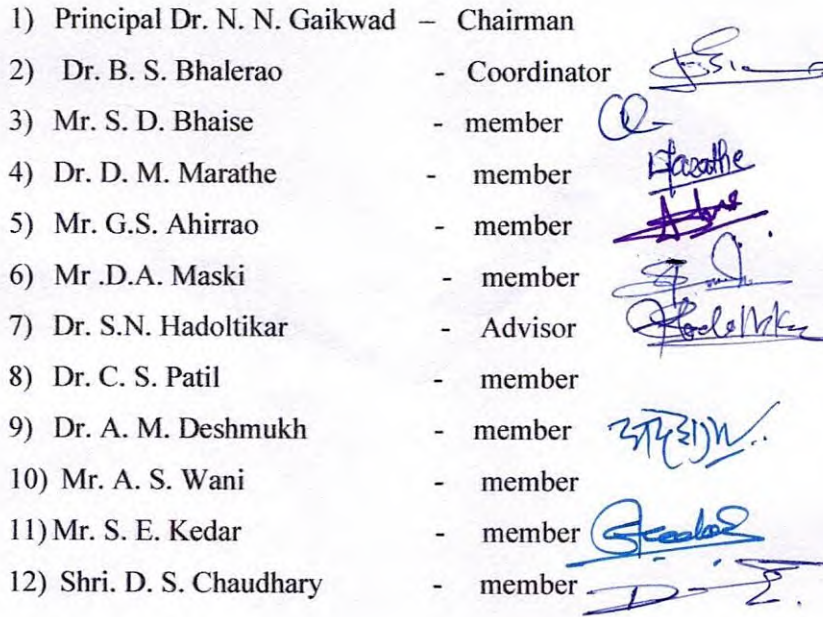 1) Principal Dr. N. N. Gaikwad – Chairman
2) Dr. B. S. Bhalerao - Coordinator
3) Mr. S. D. Bhaise - member
4) Dr. D. M. Marathe - member Marathe
5) Mr. G.S. Ahirrao - member
6) Mr .D.A. Maski - member
7) Dr. S.N. Hadoltikar - Advisor
8) Dr. C. S. Patil - member
9) Dr. A. M. Deshmukh - member
10) Mr. A. S. Wani - member
11) Mr. S. E. Kedar - member
12) Shri. D. S. Chaudhary - member